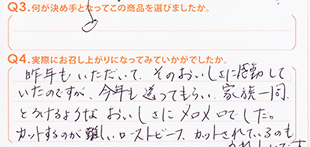 Q3.何が決め手となってこの商品を選びましたか。
Q4.実際にお召し上がりになってみていかがでしたか。
昨年もいただいて、そのおいしさに感動して
いたのですが、今年も送ってもらい、家族一同、
とろけるようなおいしさにメロメロでした。
カットするのが難しいローストビーフ、カットされているのも
うれしいです